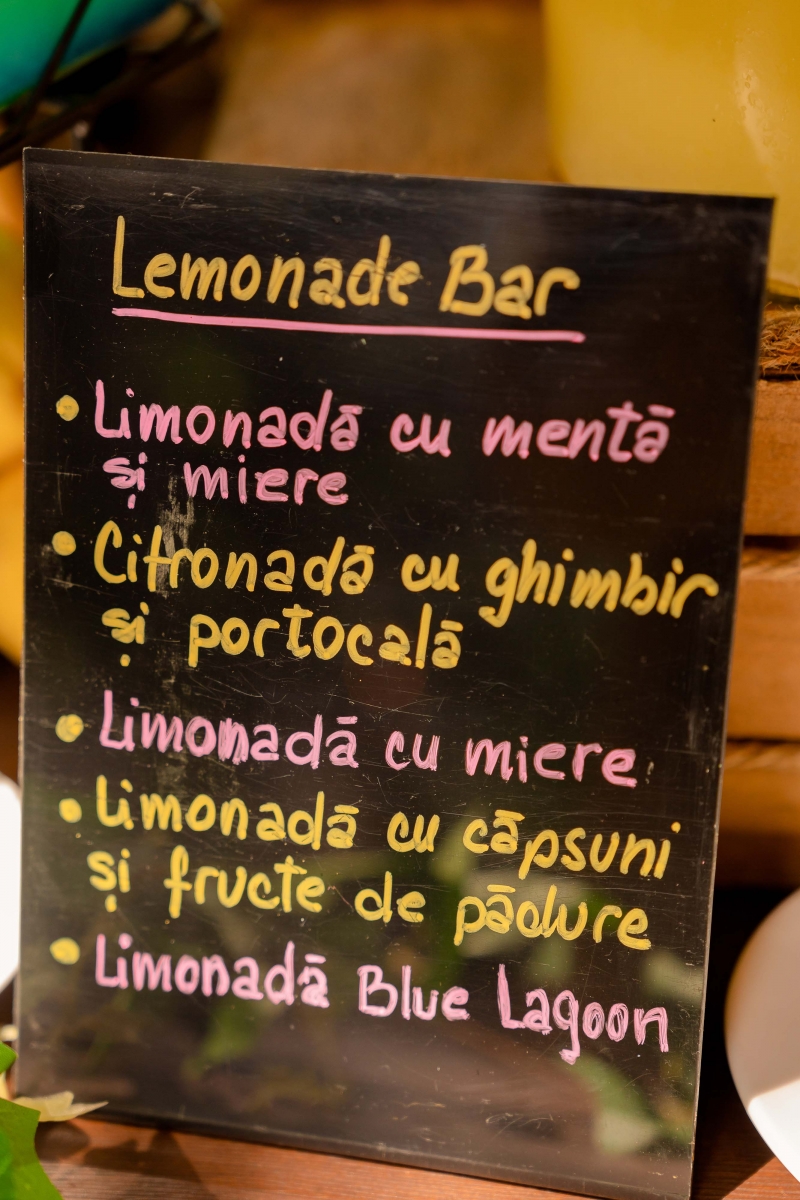 Lemonade Bar
Limonadă cu mentă
și miere
Citronadă cu ghimbir
și portocală
Limonadă cu miere
Limonadă cu căpsuni
și fructe de pădure
Limonadă Blue Lagoon